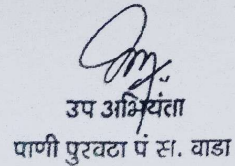 उप अभियंता
पाणी पुरवठा पं स. वाडा